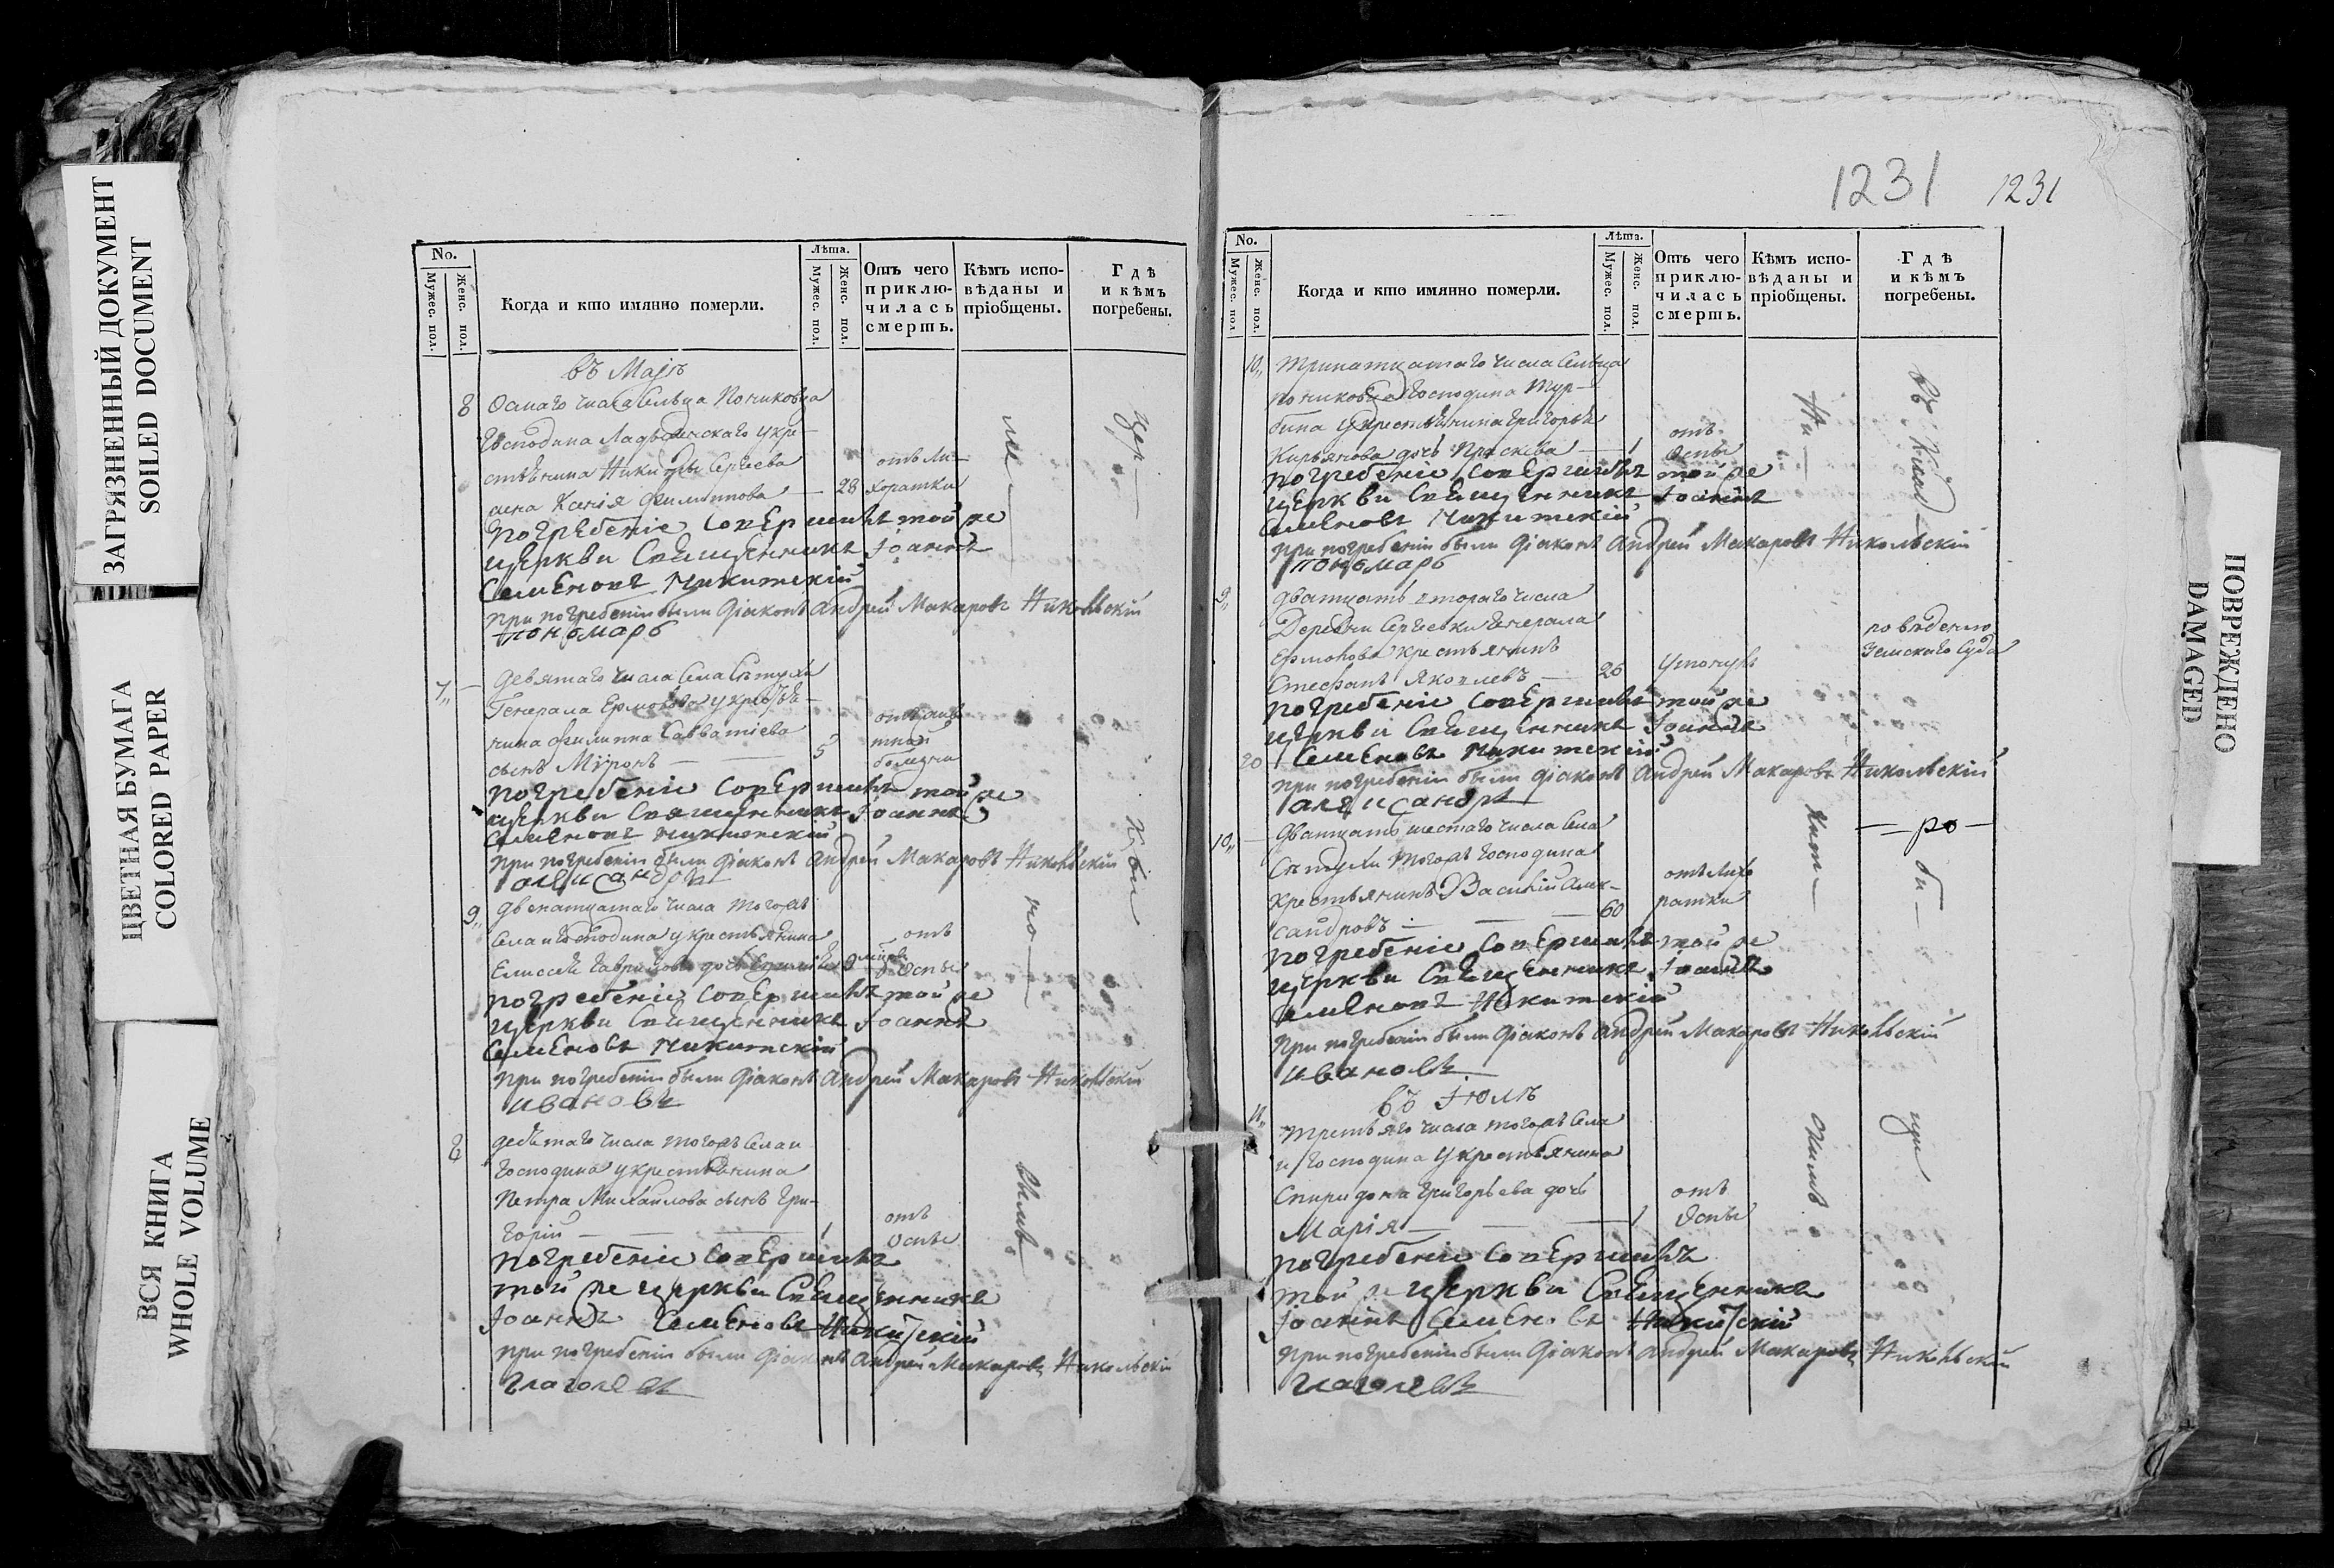 ЗАГРЯЗНЕННЫЙ ДОКУМЕНТ
SOILED DOCUMENT
ЦВЕТНАЯ БУМАГА
COLORED PAPER
ВСЯ КНИГА
WHOLE VOLUME
No.
Мужес. пол.
Женс. пол.
Когда и кто имянно померли.
Лѣта.
Мужес. пол.
Женс. пол.
Отъ чего приклю-
чилась
смерть.
Кѣмъ испо-
вѣданы и
пріобщены.
Гдѣ
и кѣмъ
погребены.
въ Маіѣ
8 Осмаго числа Сельца Поликовца
Господина укре-
стьянина Сергеева
отъ ли-
жена Филиппова — 28 хоратки
погребеніе совершилъ той же
церкви Священникъ Іоаннъ
Семеновъ Никитскій
при погребеніи были діаконъ Андрей Макаровъ Никольскій
пономарь
7 Девятаго числа Села
Генерала Ермолова у кресть-
нина Филиппа Савватіева
сынъ Міронъ — 5
болезни
погребеніе совершилъ той же
церкви Священникъ Іоаннъ
Семеновъ Никитскій
при погребеніи были діаконъ Андрей Макаровъ Никольскій
9 Двенатцатаго числа тогожъ
Села и Господина у крестьянина
отъ
Елисея Гаврилова дочь
оспы
погребеніе совершилъ той же
церкви Священникъ Іоаннъ
Семеновъ Никитскій
при погребеніи были діаконъ Андрей Макаровъ Никольскій
Ивановъ
числа тогожъ Села и
Господина у крестьянина
Петра Михайлова сынъ Гри-
горій — 1 отъ
Оспы
погребеніе совершилъ
той же церкви Священникъ
Іоаннъ Семеновъ Никитскій
при погребеніи были діаконъ Андрей Макаровъ Никольскій
Глаголевъ
1231 1231
No.
Мужес. пол.
Женс. пол.
Когда и кто имянно померли.
Лѣта.
Мужес. пол.
Женс. пол.
Отъ чего
приклю-
чилась
смерть.
Кѣмъ испо-
вѣданы и
пріобщены.
Гдѣ
и кѣмъ
погребены.
10 Тринатцатаго числа Сельца
Господина Тур-
бина у крестьянина Григорья
Кирьянова дочь — 1 отъ
Оспы
погребеніе совершилъ той же
церкви Священникъ Іоаннъ
Семеновъ Никитскій
при погребеніи были діаконъ Андрей Макаровъ Никольскій
пономарь
9 Дватцать втораго числа
Деревни Сергиевки Генерала
Ермолова крестьянинъ
Стефанъ Яковлевъ — 26
по
Земскаго Суда
погребеніе совершилъ той же
церкви Священникъ Іоаннъ
Семеновъ Никитскій
20
при погребеніи были діаконъ Андрей Макаровъ Никольскій
10 Дватцать шестаго числа Села
тогожъ Господина
крестьянинъ Василій Алек-
сандровъ — 60 отъ лихо
ратки
погребеніе совершилъ той же
церкви Священникъ Іоаннъ
Семеновъ Никитскій
при погребеніи были діаконъ Андрей Макаровъ Никольскій
Ивановъ
въ Іюлѣ
11 Третьяго числа тогожъ Села
и Господина у крестьянина
Спиридона Григорьева дочь
Марія — 1 отъ
Оспы
погребеніе совершилъ
той же церкви Священникъ
Іоаннъ Семеновъ Никитскій
при погребеніи были діаконъ Андрей Макаровъ Никольскій
Глаголевъ
ПОВРЕЖДЕНО
DAMAGED